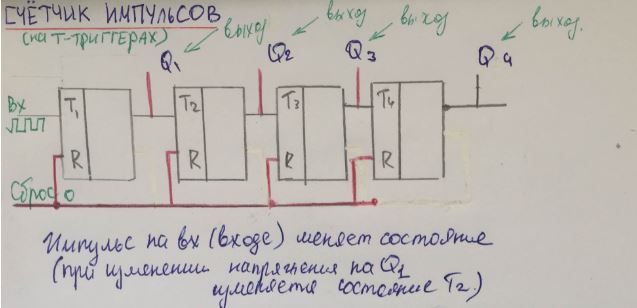 СЧЁТЧИК ИМПУЛЬСОВ
(на Т-ТРИГГЕРАХ)
выход
выход
выход
выход.
Q1
Q2
Q3
Q4
Вх
T1
T2
T3
T4
R
R
R
R
Сброс 0
Импульс на вх (входе) меняет состояние
(при изменении напряжения на Q1
изменяется состояние T2.)